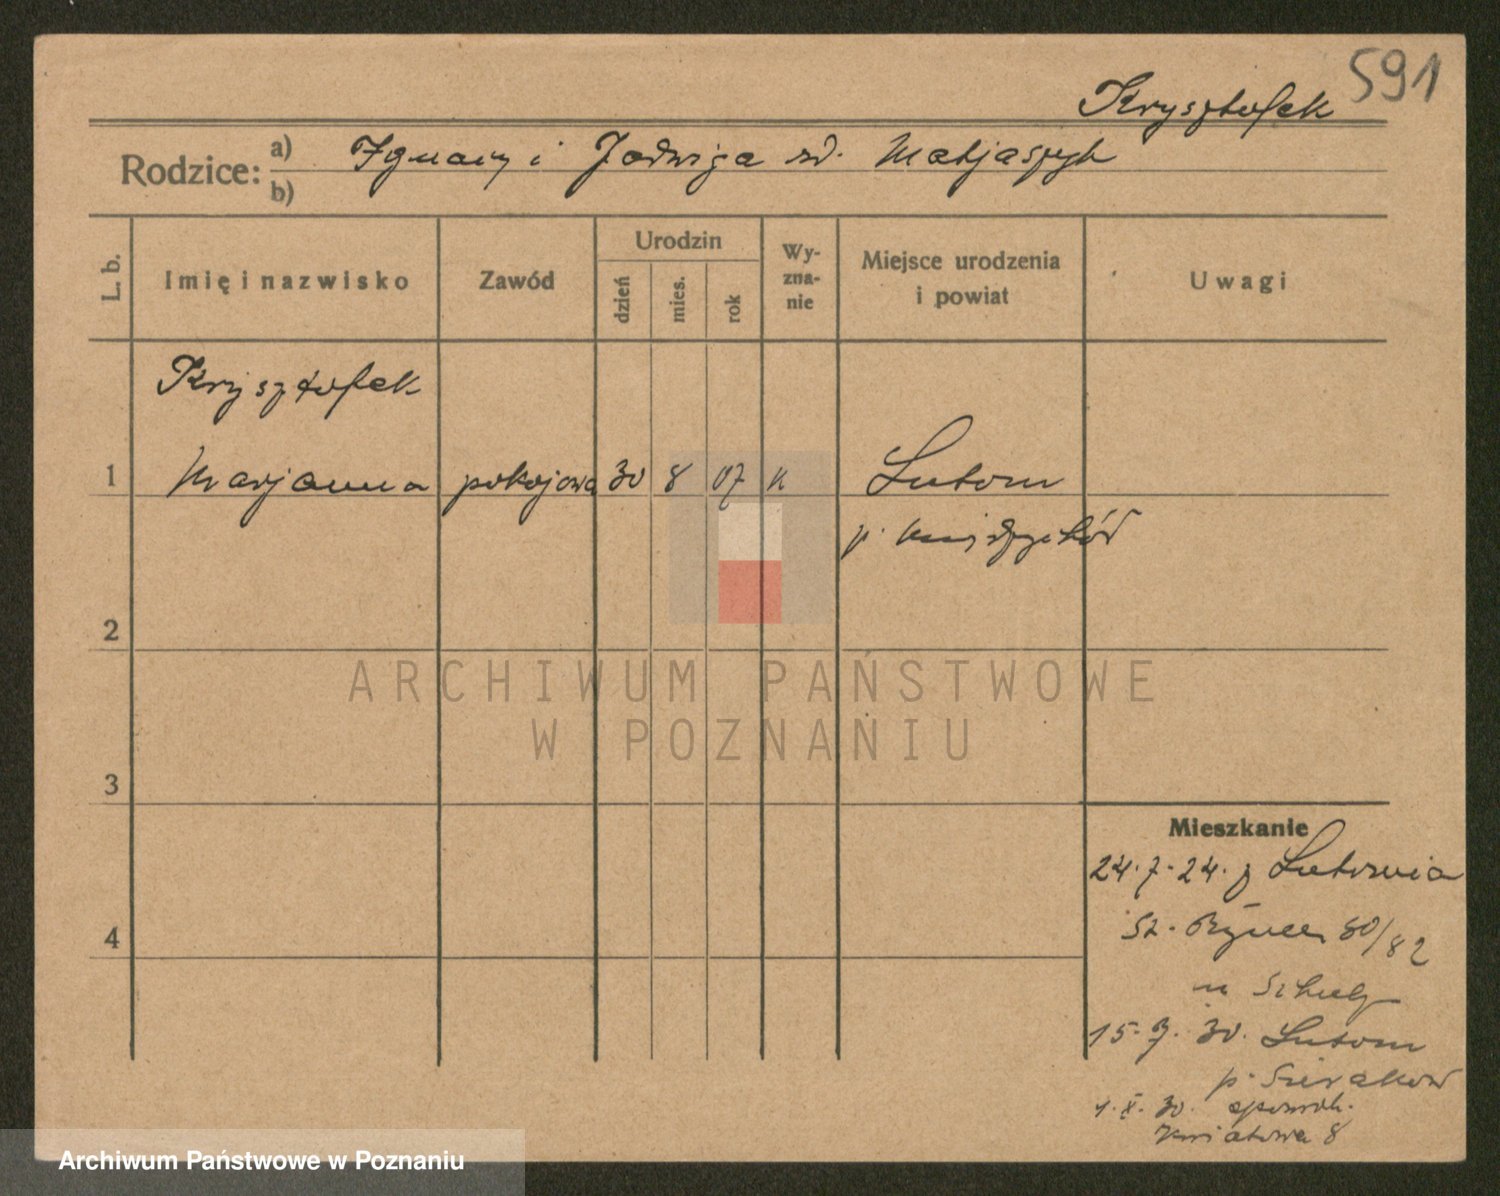 591
Krysztofek
Rodzice: a) Ignacy i Jadwiga zd. Matjaszyk
b)
L. b. Imię i nazwisko Zawód Urodzin dzień mies. rok Wy-zna-nie Miejsce urodzenia i powiat Uwagi
Krysztofek
1 Marjanna pokojowa 30 8 07 k Lutom
p. Międzychód
2
ARCHIWUM PAŃSTWOWE
W POZNANIU
3
Mieszkanie
24.7.24. z Lutomia
4 St. Rynek 80/82
u Schulz
15.7.30. Lutom
p. Sieraków
1.X.30.
Kwiatowa 8
Archiwum Państwowe w Poznaniu